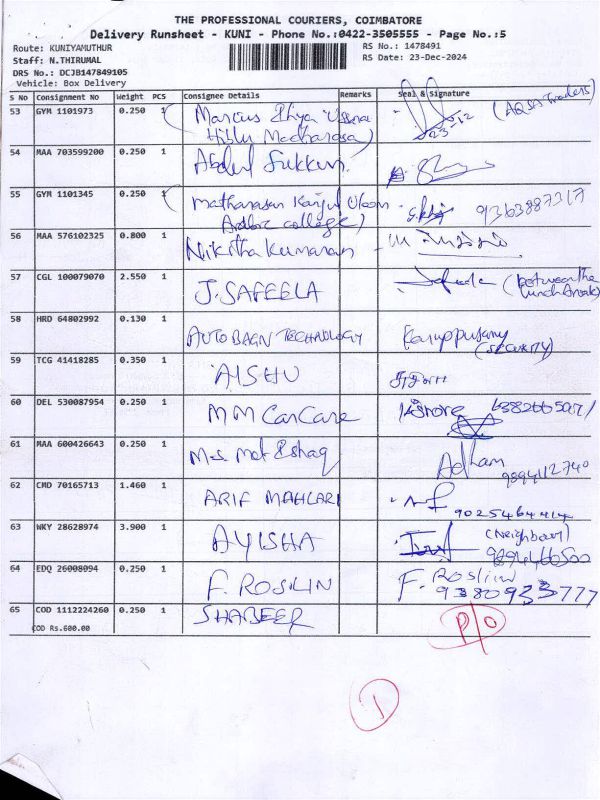 THE PROFESSIONAL COURIERS, COIMBATORE
Delivery Runsheet - KUNI - Phone No.:0422-3505555 - Page No.:5
Route: KUNIYAMUTHUR
RS No.: 1478491
Staff: N.THIRUMAL
RS Date: 23-Dec-2024
DRS No.: DCJB147849105
Vehicle: Box Delivery
S No Consignment No Weight PCS Consignee Details Remarks Seal & Signature
53 GYM 1101973 0.250 1 (AQSA Traders)
23-12
54 MAA 703599200 0.250 1 Abdul Sukkur.
55 GYM 1101345 0.250 1 9363887317
college)
56 MAA 576102325 0.800 1 Nikitha Kumaran
57 CGL 100079070 2.550 1 J.SAFEELA (between the
Lunch break)
58 HRD 64802992 0.130 1 AUTOBAGN TECHNOLOGY Karuppusamy
(SECURITY)
59 TCG 41418285 0.350 1 AISHU
60 DEL 530087954 0.250 1 MM CarCare Kishore
61 MAA 600426643 0.250 1 Adham
9894112740
62 CMD 70165713 1.460 1 ARIF
9025464414
63 WKY 28628974 3.900 1 AYISHA (Neighbour)
9894466500
64 EDQ 26008094 0.250 1 F. ROSILIN F. Rosilin
9380933777
65 COD 1112224260 0.250 1 SHABEER P/O
COD Rs.600.00
1